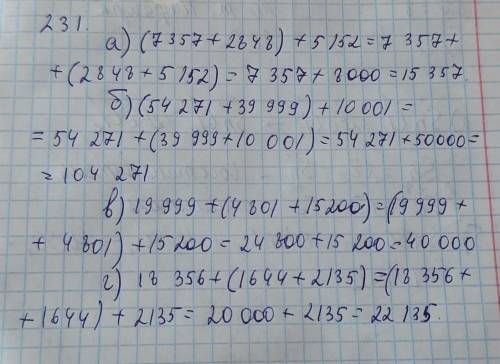 231.
а) (7357+2848)+5152=7 357+
+(2848+5152)=7357+8000=15357.
б) (54 271+39 999)+10 001=
=54 271+(39 999+10 001)=54 271+50000=
=104 271.
в) 19 999+(4801+15200)=(19 999+
+ 4801)+15200=24800+15 200=40 000
г) 18 356+(1644+2135)=(18 356+
+1644)+2135=20 000+2135=22 135.